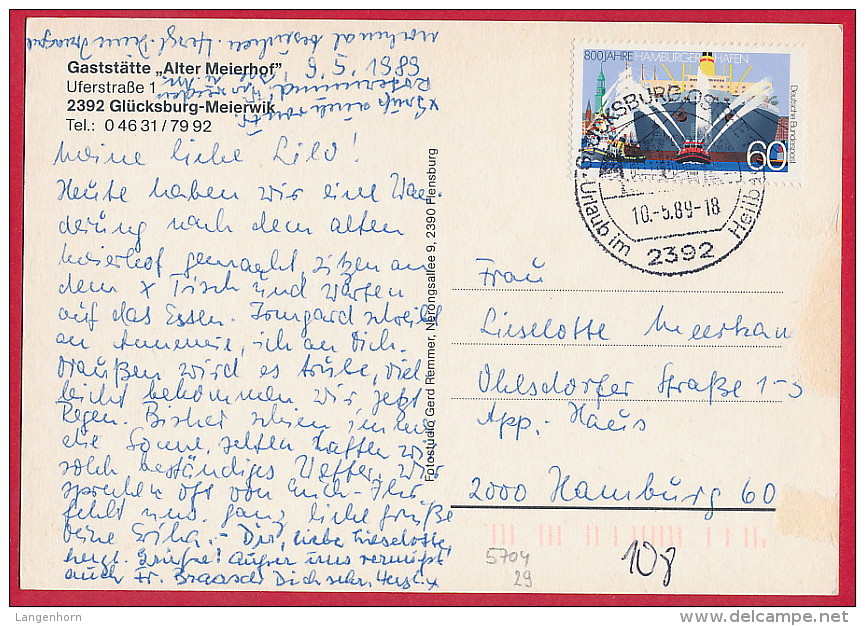 nochmal besuchen. Herzl. Deine
9.5.1989
Gaststätte „Alter Meierhof"
Uferstraße 1
2392 Glücksburg-Meierwik
Tel.: 0 46 31 / 79 92
Meine liebe Lilo!
Heute haben wir eine Wan-
derung nach dem alten
Meierhof gemacht, sitzen an
dem x Tisch und warten
auf das Essen. Irmgard schreibt
an Annemie, ich an Dich.
Draußen wird es trübe, viel
leicht bekommen wir jetzt
Regen. Bisher schien immer
die Sonne, selten hatten wir
solch beständiges Wetter. Wir
sprechen oft von Euch - Ihr
fehlt uns. Ganz liebe Grüße
Deine Erika. - Dir, liebe Lieselotte
herzl. Grüße! Außer uns vermißt
auch Fr. Braasch Dich sehr.
Fotostudio Gerd Remmer, Nerongsallee 9, 2390 Flensburg
800 JAHRE HAMBURGER HAFEN
Deutsche Bundespost
60
GLÜCKSBURG, OS
10.-5.89-18
Urlaub im Heilb
2392
Frau
Lieselotte Meerkam
Ohlsdorfer Straße 1-3
App.-Haus
2000 Hamburg 60
5704
29
108
Langenhorn
PicturesBank.delcampe.net